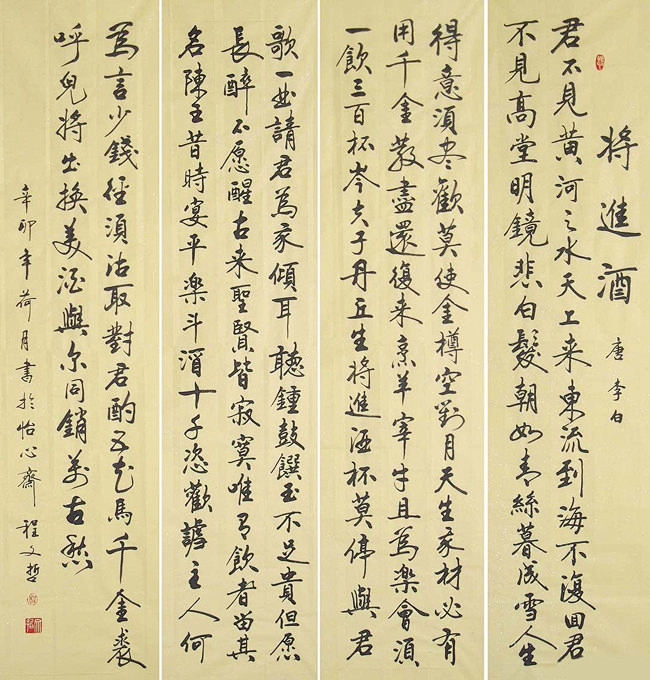 將進酒
唐李白
君不見黃河之水天上来東流到海不復回君
不見高堂明鏡悲白髮朝如青絲暮成雪人生
得意須尽歡莫使金樽空對月天生我材必有
用千金散盡還復来烹羊宰牛且為楽會須
一飲三百杯岑夫子丹丘生將進酒杯莫停與君
歌一曲請君為我傾耳聽鍾鼓饌玉不足貴但愿
長醉不愿醒古来聖賢皆寂寞唯有飲者留其
名陳王昔時宴平楽斗酒十千恣歡謔主人何
為言少錢徑須沽取對君酌五花馬千金裘
呼兒將出換美酒與尔同銷萬古愁
辛卯年荷月書於怡心齋程文哲